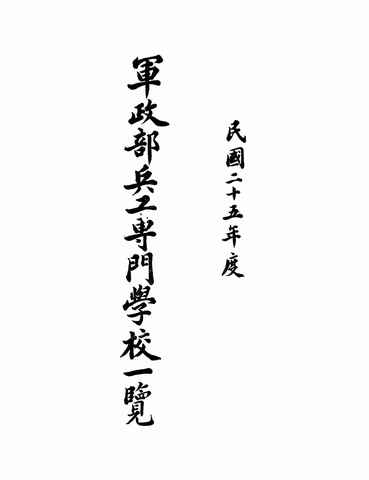 民國二十五年度
軍政部兵工專門學校一覽